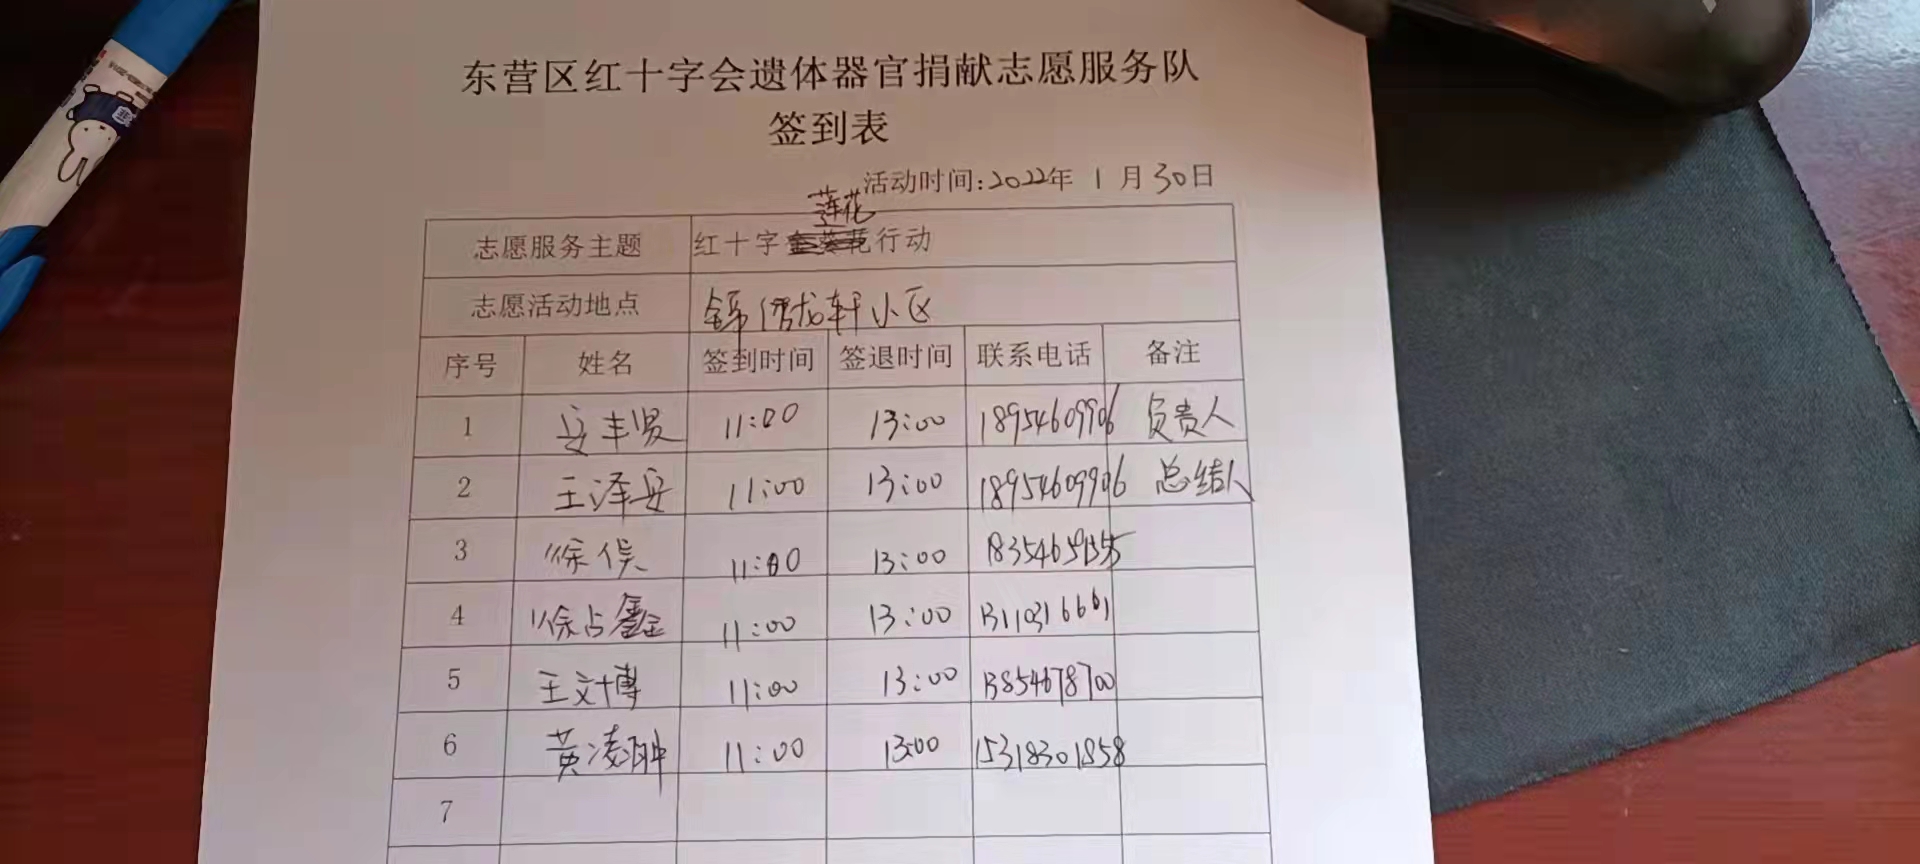 东营区红十字会遗体器官捐献志愿服务队
签到表
活动时间:2022年 1 月 30日
莲花
志愿服务主题 红十字金葵花行动
志愿活动地点 锦绣龙轩小区
序号 姓名 签到时间 签退时间 联系电话 备注
1 安丰贤 11:00 13:00 18954609906 负责人
2 王泽安 11:00 13:00 18954609906 总结人
3 徐侯 11:00 13:00
4 徐占鑫 11:00 13:00
5 王文博 11:00 13:00 13854678700
6 黄凌翀 11:00 13:00 15318301858
7